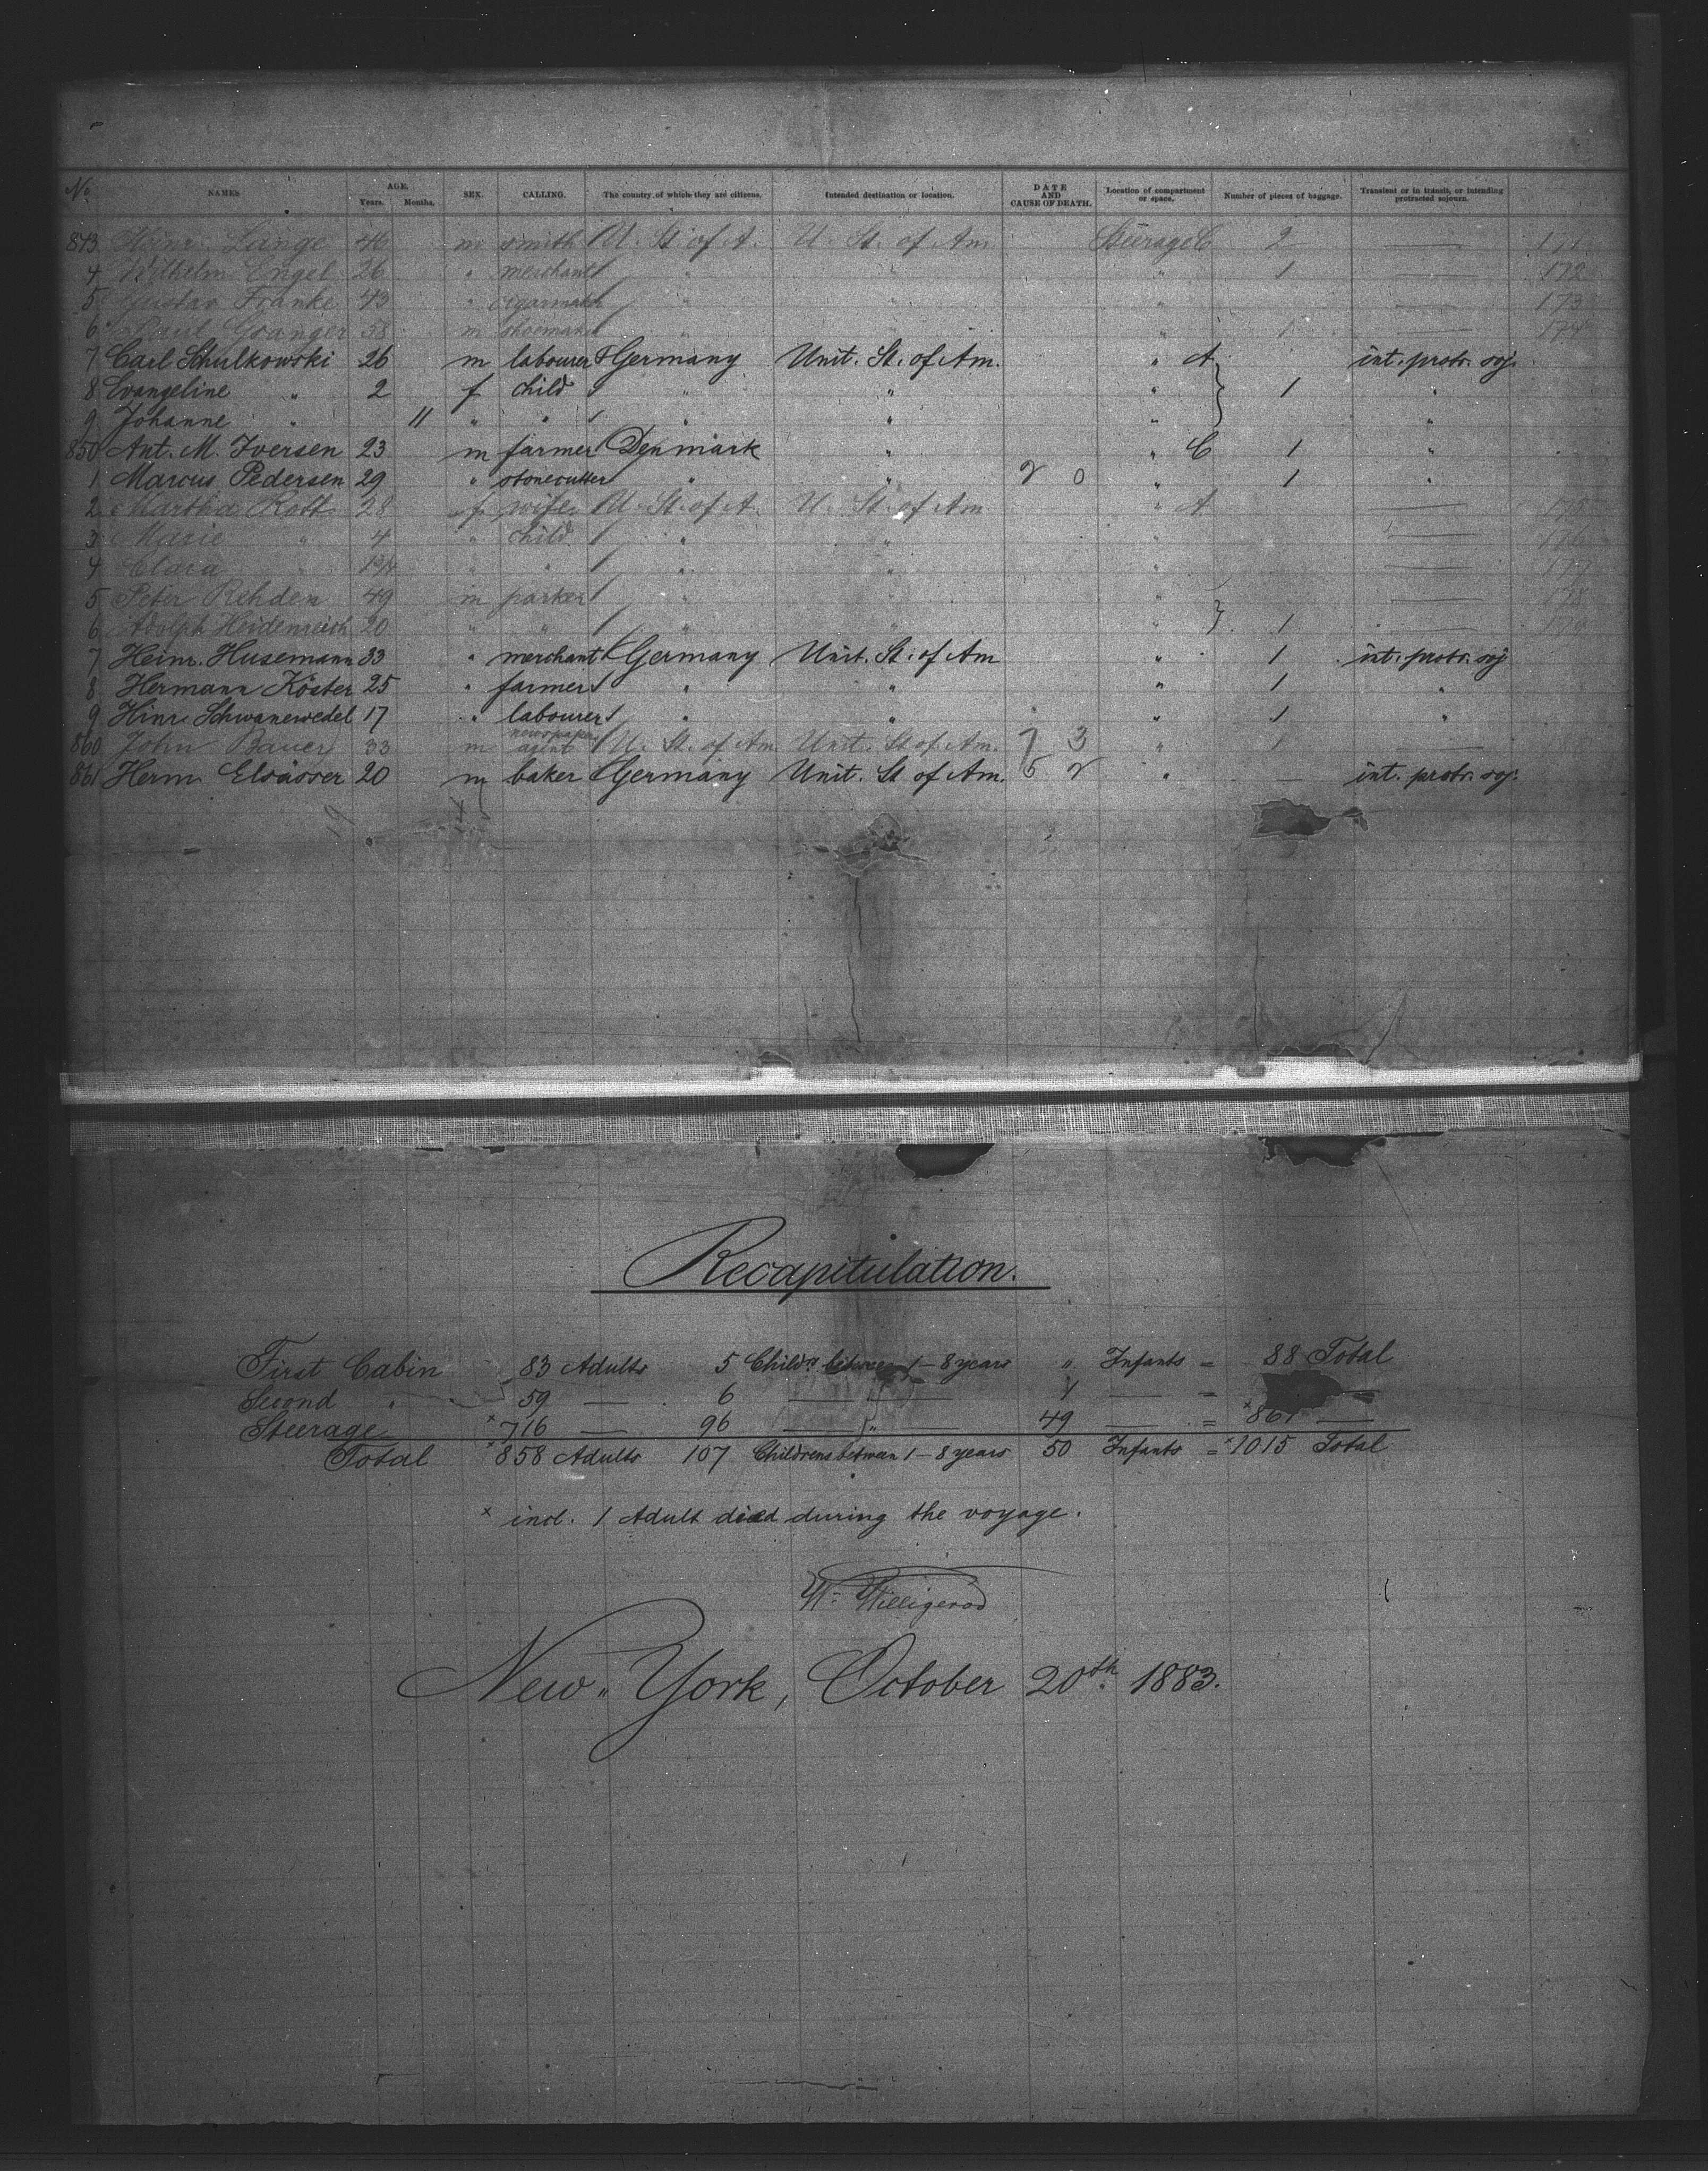 No. NAMES. AGE. Years. Months. SEX. CALLING. The country of which they are citizens. Intended destination or location. DATE AND CAUSE OF DEATH. Location of compartment or space. Number of pieces of baggage. Transient or in transit, or intending protracted sojourn.
843 Heinr. Lange 46 m smith U. St. of A. U. St. of Am. Steerage C 2 — 171
4 Wilhelm Engel 26 " merchant " " " 1 — 172
5 Gustav Franke 43 " cigarmaker " " " — 173
6 Paul Granger 58 m shoemaker " " " 1 — 174
7 Carl Schulkowski 26 m labourer Germany Unit. St. of Am. " A int. protr. soj.
8 Evangeline " 2 f child " " " 1 "
9 Johanne " 11 " " " " "
850 Ant. M. Iversen 23 m farmer Denmark " " C 1 "
1 Marcus Pedersen 29 " stonecutter " " 2 0 " 1 "
2 Martha Rott 28 f wife U. St. of A. U. St. of Am " A — 175
3 Marie " 4 " child " " " — 176
4 Clara " " " " " " — 177
5 Peter Rehden 49 m parker " " " — 178
6 Adolph Heidenreich 20 " " " " " 1 — 179
7 Heinr. Husemann 33 " merchant Germany Unit. St. of Am " 1 int. protr. soj
8 Hermann Köster 25 " farmer " " " 1 "
9 Hinr. Schwanewedel 17 " labourer " " " 1 "
860 John Bauer 33 m newspaper agent U. St. of Am. Unit. St. of Am. 7 3 " 1 —
861 Herm. Elsässer 20 m baker Germany Unit. St. of Am. 5 2 " — int. protr. soj.
Recapitulation.
First Cabin 83 Adults 5 Childr. between 1–8 years " Infants = 88 Total
Second " 59 — 6 — " — 1 — =
Steerage × 716 — 96 — " — 49 — = × 861 —
Total × 858 Adults 107 Childrens between 1–8 years 50 Infants = × 1015 Total
× incl. 1 Adult died during the voyage.
W. Willigerod
New-York, October 20th. 1883.